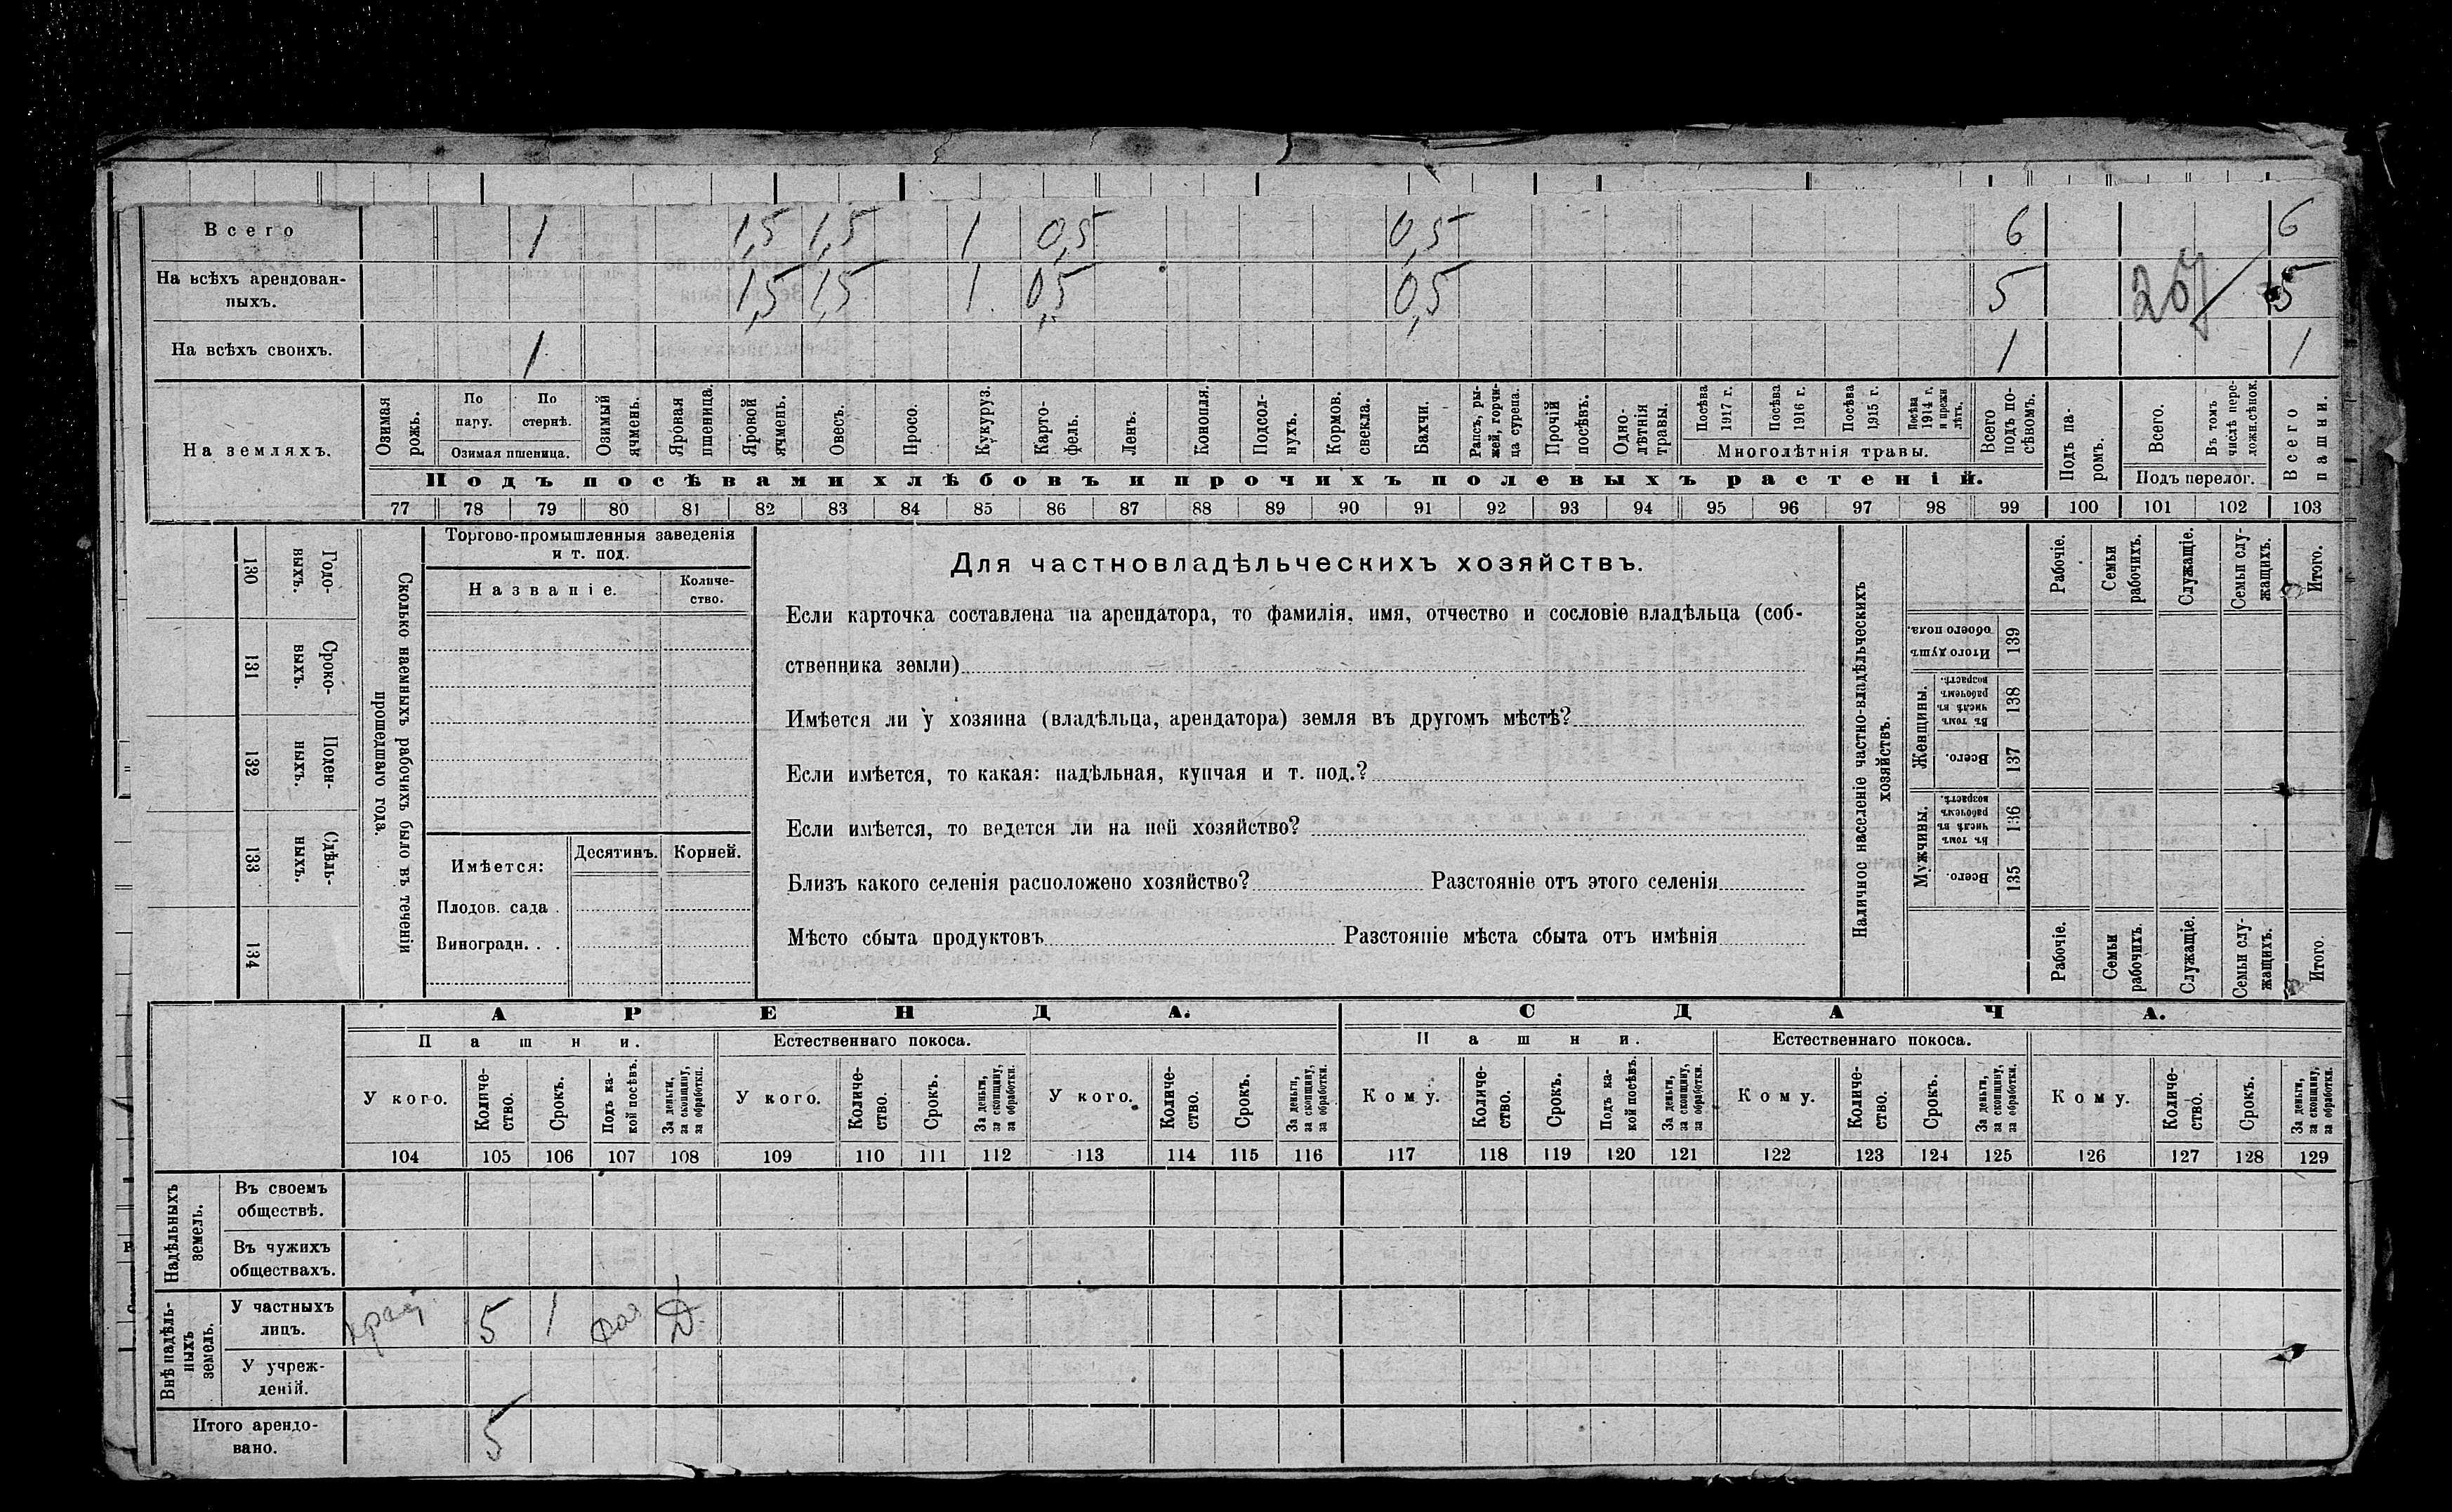 Всего 1 1,5 1,5 1 0,5 0,5 6 6
На всѣхъ арендован-
ныхъ. 1,5 1,5 1 0,5 0,5 5 5
На всѣхъ своихъ. 1 1 1
На земляхъ.
Озимая рожь.
По пару.
По стернѣ.
Озимая пшеница.
Озимый ячмень.
Яровая пшеница.
Яровой ячмень.
Овесъ.
Просо.
Кукуруз.
Карто-
фель.
Ленъ.
Конопля.
Подсол-
нухъ.
Кормов. свекла.
Бахчи.
Рапсъ, ры-
жей, горчи-
ца сурепа.
Прочій посѣвъ.
Одно-
лѣтнія травы.
Посѣва 1917 г.
Посѣва 1916 г.
Посѣва 1915 г.
Посѣва 1914 г. и прежн лѣтъ.
Многолѣтнія травы.
Всего подъ по-
сѣвомъ.
Подъ па-
ромъ.
Всего.
Въ томъ числѣ пере-
ложн.сѣнок.
Подъ перелог.
Всего пашни.
Подъ посѣвами хлѣбовъ и прочихъ полевыхъ растеній.
77 78 79 80 81 82 83 84 85 86 87 88 89 90 91 92 93 94 95 96 97 98 99 100 101 102 103
Сколько наемныхъ рабочихъ было въ теченіи
прошедшаго года.
Годо-
выхъ.
130
Сроко-
выхъ.
131
Поден-
ныхъ.
132
Сдѣль-
ныхъ.
133
134
Торгово-промышленныя заведенія
и т. под.
Названіе.
Количе-
ство.
Имѣется: Десятинъ. Корней.
Плодов. сада .
Виноградн. . .
Для частновладѣльческихъ хозяйствъ.
Если карточка составлена на арендатора, то фамилія, имя, отчество и сословіе владѣльца (соб-
ственника земли)
Имѣется ли у хозяина (владѣльца, арендатора) земля въ другомъ мѣстѣ?
Если имѣется, то какая: надѣльная, купчая и т. под.?
Если имѣется, то ведется ли на ней хозяйство?
Близъ какого селенія расположено хозяйство? Разстояніе отъ этого селенія
Мѣсто сбыта продуктовъ Разстояніе мѣста сбыта отъ имѣнія
Наличное населеніе частно-владѣльческихъ
хозяйствъ.
Рабочіе.
Семьи рабочихъ.
Служащіе.
Семьи слу-
жащихъ.
Итого.
Итого душъ обоего пола.
139
Женщины.
Въ томъ числѣ въ рабочемъ возрастѣ.
138
Всего.
137
Мужчины.
Въ томъ числѣ въ рабочемъ возрастѣ.
136
Всего.
135
Рабочіе.
Семьи рабочихъ.
Служащіе.
Семьи слу-
жащихъ.
Итого.
АРЕНДА. СДАЧА.
Пашни. Естественнаго покоса. Пашни. Естественнаго покоса.
У кого.
Количе-
ство.
Срокъ.
Подъ ка-
кой посѣвъ.
За деньги,
за скопщину,
за обработки.
У кого.
Количе-
ство.
Срокъ.
За деньги,
за скопщину,
за обработки.
У кого.
Количе-
ство.
Срокъ.
За деньги,
за скопщину,
за обработки.
Кому.
Количе-
ство.
Срокъ.
Подъ ка-
кой посѣвъ.
За деньги,
за скопщину,
за обработки.
Кому.
Количе-
ство.
Срокъ.
За деньги,
за скопщину,
за обработки.
Кому.
Количе-
ство.
Срокъ.
За деньги,
за скопщину,
за обработки.
104 105 106 107 108 109 110 111 112 113 114 115 116 117 118 119 120 121 122 123 124 125 126 127 128 129
Надѣльныхъ
земель.
Въ своемъ
обществѣ.
Въ чужихъ
обществахъ.
Внѣ надѣль-
ныхъ
земель.
У частныхъ
лицъ. 5 1 Д
У учреж-
деній.
Итого арендо-
вано. 5